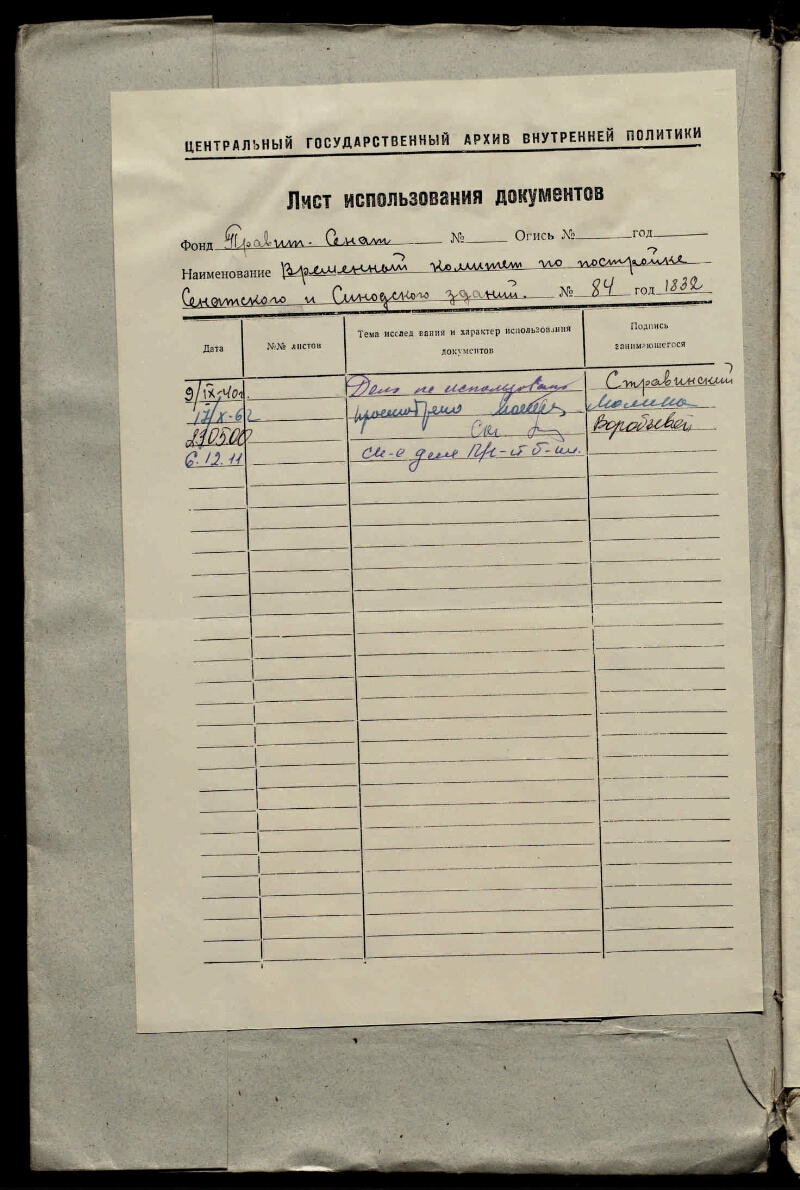 ЦЕНТРАЛЬНЫЙ ГОСУДАРСТВЕННЫЙ АРХИВ ВНУТРЕННЕЙ ПОЛИТИКИ
Лист использования документов
Фонд Правит. Сенат № Опись № год
Наименование Временный комитет по постройке
Сенатского и Синодского зданий. № 84 год 1832
Дата №№ листов Тема исслед вания и характер использования документов Подпись занимающегося
9/IX-40г. Дело не использовано Стравинский
17/X-62 просмотрено Малина
230500 Воробьевой
6.12.11